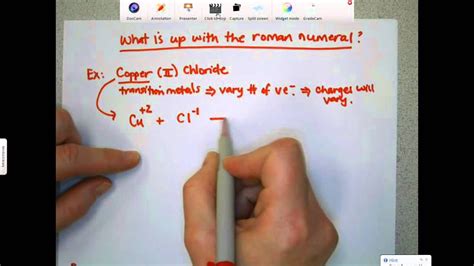 DocCam Annotation Presenter Click to stop Capture Split screen Widget mode
What is up with the roman numeral?
Ex: Copper (II) Chloride
transition metals ⇒ vary # of ve⁻ ⇒ charges will vary.
Cu⁺² + Cl⁻¹ —